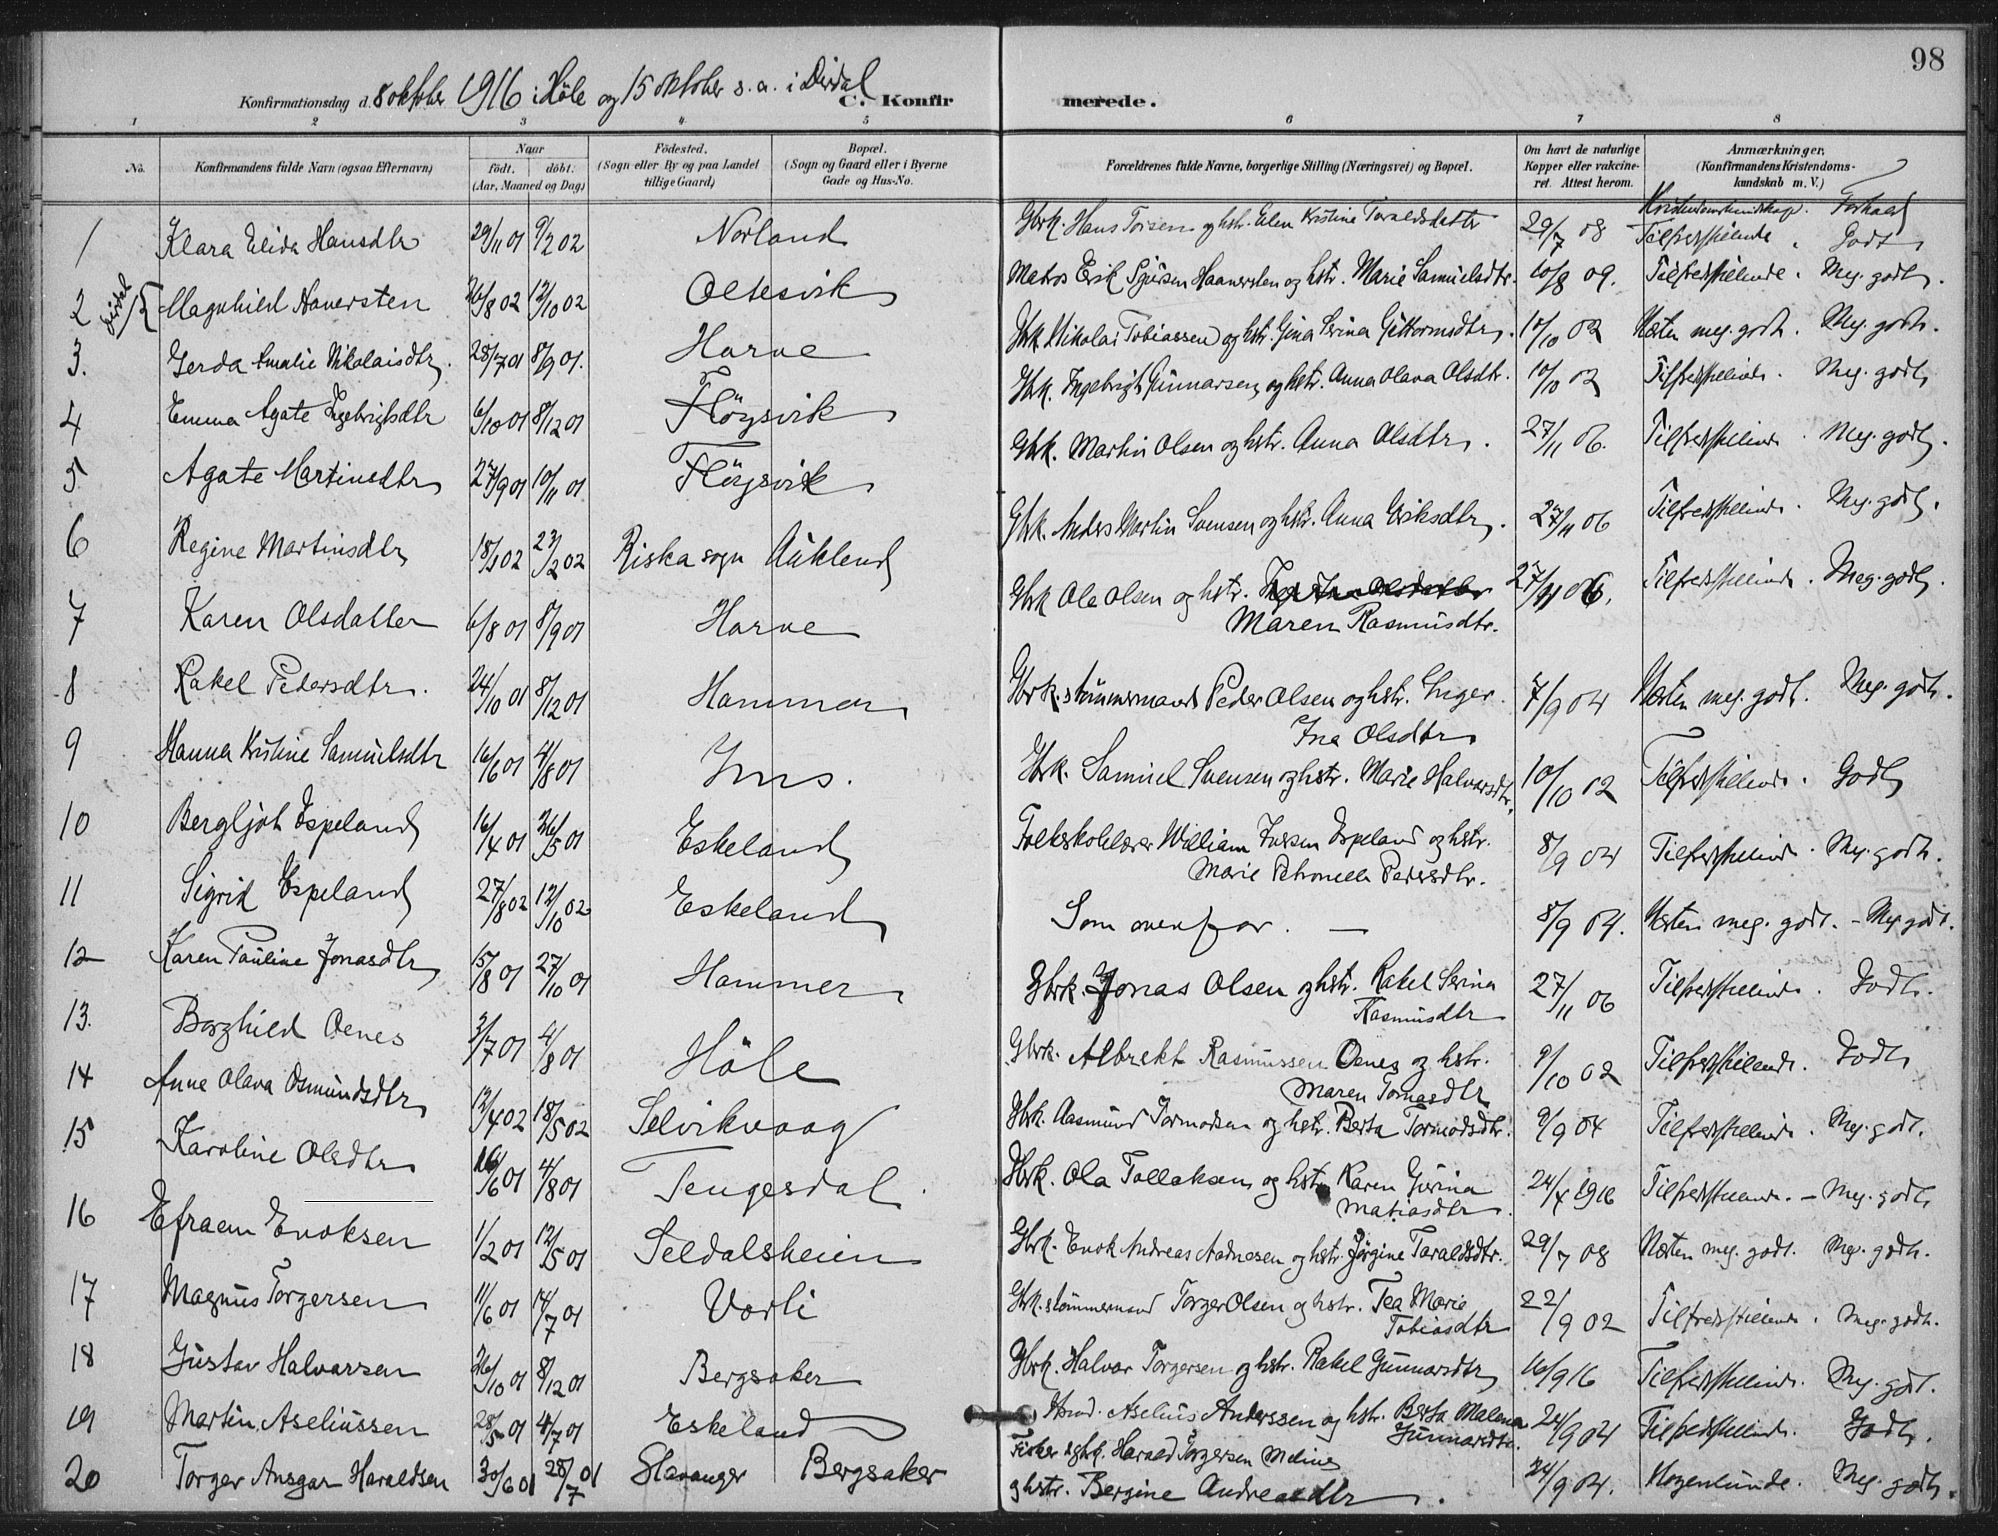 98
Konfirmationsdag d. 8 oktober 1916 i Höle og 15 oktober s. a. i Dirdal
C. Konfirmerede.
1 2 3 4 5 6 7 8
No. Konfirmandens fulde Navn (ogsaa Efternavn) Naar født. døbt. (Aar, Maaned og Dag) Fødested. (Sogn eller By og paa Landet tillige Gaard) Bopæl. (Sogn og Gaard eller i Byerne Gade og Hus-No.) Forældrenes fulde Navne, borgerlige Stilling (Næringsvei) og Bopæl. Om havt de naturlige Kopper eller vakcineret. Attest herom. Anmærkninger. (Konfirmandens Kristendomskundskab m. V.)
Kristendomskundskap. Forhold
1 Klara Elida Hansdtr 29/11 01 9/2 02 Norland Gbrk. Hans Torsen og hstr. Elen Kristine Taraldsdatter 29/7 08 Tilfredsstillende. Godt
2 Dirdal Magnhild Haversten 26/8 02 12/10 02 Oltesvik Matros Erik Haaversten og hstr. Marie Samuelsdtr. 10/8 09. Tilfredsstillende. Meg. godt.
3. Gerda Amalie Nikolaisdtr. 28/7 01 8/9 01. Harve Gbrk. Nikolai Tobiassen og hstr. Gina Serina Guttormsdtr. 10/10 02 Næsten meg. godt. Meg. godt.
4 Emma Agate Ingebrigtsdtr 6/10 01 8/12 01 Flöysvik Gbrk. Ingebrigt Gunnarsen og hstr. Anna Olava Olsdtr. 10/10 02 Tilfredsstillende. Meg. godt
5 Agate Martinsdtr 27/9 01 10/11 01 Flöysvik Gbrk. Martin Olsen og hstr. Anna Olsdtr. 27/11 06. Tilfredsstillende. Meg. godt.
6 Regine Martinsdtr 18/1 02 23/2 02 Riska sogn Auklend Gbrk. Anders Martin Svensen og hstr. Anna Eriksdtr. 27/11 06 Tilfredsstillende. Meg. godt.
7 Karen Olsdatter 6/8 01 8/9 01 Harve Gbrk Ole Olsen og hstr. 27/11 06. Tilfredsstillende. Meg. godt.
Maren Rasmusdtr.
8 Rakel Pedersdtr. 24/10 01 8/12 01 Hammer Gbrk. & tömmermand Peder Olsen og hstr. Inger 7/9 04 Næsten meg. godt. Meg. godt.
Ina Olsdtr
9 Hanna Kristine Samuelsdtr 16/6 01 4/8 01 Ims. Gbrk. Samuel Svensen og hstr. Marie Halvorsdtr. 10/10 02 Tilfredsstillende. Godt
10 Bergljot Espeland 16/4 01 26/5 01 Eskeland Folkeskolelærer William Espeland og hstr. 8/9 04 Tilfredsstillende. Meg. godt.
Marie Petronella Pedersdtr.
11 Sigrid Espeland 27/8 02 12/10 02 Eskeland Som ovenfor. — 8/9 04. Næsten meg. godt. – Meg godt.
12 Karen Pauline Jonasdtr 15/8 01 27/10 01 Hammer Gbrk. Jonas Olsen og hstr. Rakel Serina 27/11 06 Tilfredsstillende. Godt.
Rasmusdtr
13. Borghild Oenes 3/7 01 4/8 01 Höle Gbrk. Albrekt Rasmussen Oenes og hstr. 9/10 02 Tilfredsstillende. Godt
Maren Tomasdtr
14 Anne Olava Osmundsdtr 12/4 02 18/5 02 Selvikvaag Gbrk. Aasmund Tormodsen og hstr. Berta Tormodsdtr. 9/9 04 Tilfredsstillende. Meg. godt.
15 Karoline Olsdtr 16/6 01 4/8 01 Tengesdal. Gbrk. Ola Tollaksen og hstr. Karen Gurina 24/4 1916 Tilfredsstillende. – Meg. godt
Matiasdtr.
16 Efraem Enoksen 1/2 01 12/5 01 Seldalsheien Gbrk. Enok Andreas Aadnesen og hstr. Jørgine Taraldsdtr. 29/7 08 Næsten meg. godt. Meg. godt.
17 Magnus Torgersen 11/6 01 14/7 01 Vorli Gbrk. & tömmermand Torger Olsen og hstr. Tea Marie 22/9 02 Tilfredsstillende. Meg. godt.
Tobiasdtr
18 Gustav Halvorsen 26/10 01 8/12 01 Bergsaker Gbrk. Halvor Torgersen og hstr. Rakel Gunnarsdtr 10/9 16 Tilfredsstillende. Meg. godt.
19 Martin Aseliussen 28/5 01 4/7 01 Eskeland Aselius Anderssen og hstr. Berta Malena 24/9 04 Tilfredsstillende. Godt.
Gunnarsdtr.
20 Torger Ansgar Haraldsen 30/6 01 28/7 01 Stavanger Bergsaker Fisker & gbk. Harald Torgersen Meling 24/9 04. Nogenlunde. Meg. godt.
og hstr. Bergine Andreasdtr.